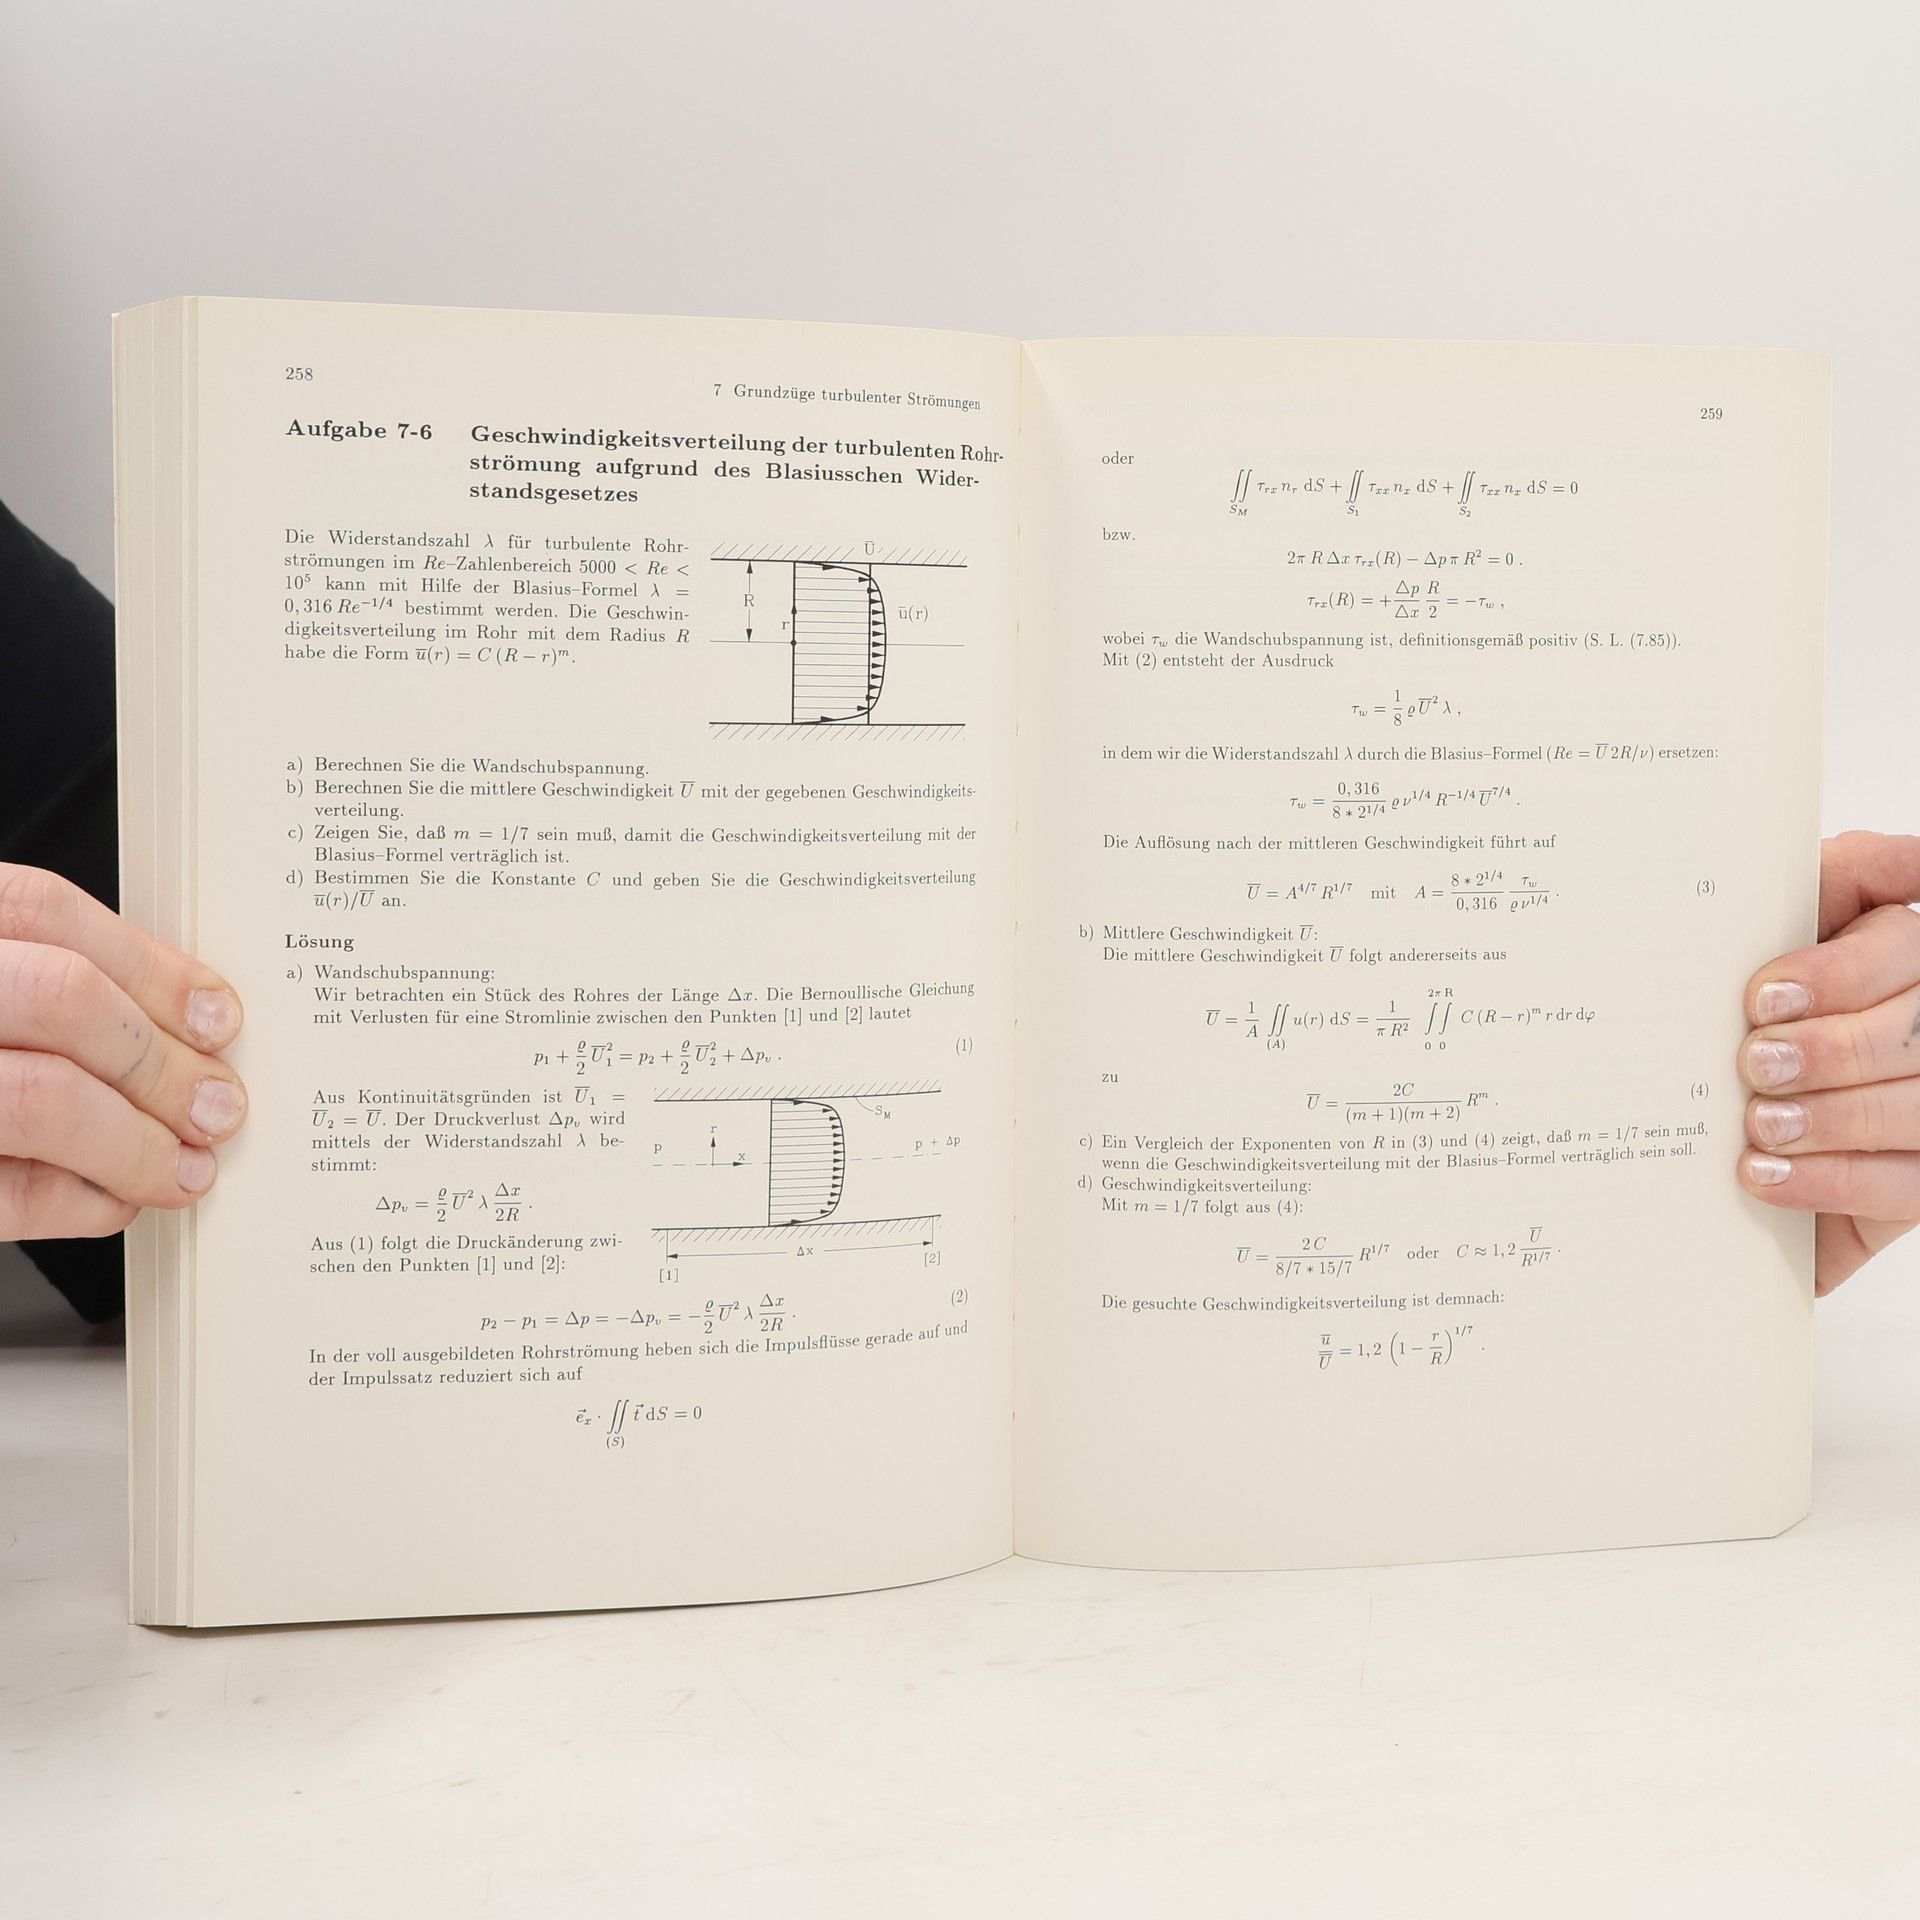 258
7 Grundzüge turbulenter Strömungen
Aufgabe 7-6 Geschwindigkeitsverteilung der turbulenten Rohr-
strömung aufgrund des Blasiusschen Wider-
standsgesetzes
Die Widerstandszahl λ für turbulente Rohr-
strömungen im Re–Zahlenbereich 5000 < Re <
10⁵ kann mit Hilfe der Blasius–Formel λ =
0,316 Re^{−1/4} bestimmt werden. Die Geschwin-
digkeitsverteilung im Rohr mit dem Radius R
habe die Form u̅(r) = C (R − r)^m.
U̅
R
r
u̅(r)
a) Berechnen Sie die Wandschubspannung.
b) Berechnen Sie die mittlere Geschwindigkeit U̅ mit der gegebenen Geschwindigkeits-
verteilung.
c) Zeigen Sie, daß m = 1/7 sein muß, damit die Geschwindigkeitsverteilung mit der
Blasius–Formel verträglich ist.
d) Bestimmen Sie die Konstante C und geben Sie die Geschwindigkeitsverteilung
u̅(r)/U̅ an.
Lösung
a) Wandschubspannung:
Wir betrachten ein Stück des Rohres der Länge Δx. Die Bernoullische Gleichung
mit Verlusten für eine Stromlinie zwischen den Punkten [1] und [2] lautet
p₁ + ϱ/2 U̅₁² = p₂ + ϱ/2 U̅₂² + Δp_v . (1)
Aus Kontinuitätsgründen ist U̅₁ =
U̅₂ = U̅. Der Druckverlust Δp_v wird
mittels der Widerstandszahl λ be-
stimmt:
Δp_v = ϱ/2 U̅² λ Δx/2R .
Aus (1) folgt die Druckänderung zwi-
schen den Punkten [1] und [2]:
S_M
p
r
x
p + Δp
Δx
[1]
[2]
p₂ − p₁ = Δp = −Δp_v = −ϱ/2 U̅² λ Δx/2R . (2)
In der voll ausgebildeten Rohrströmung heben sich die Impulsflüsse gerade auf und
der Impulssatz reduziert sich auf
e⃗_x · ∬_(S) t⃗ dS = 0
259
oder
∬_{S_M} τ_rx n_r dS + ∬_{S₁} τ_xx n_x dS + ∬_{S₂} τ_xx n_x dS = 0
bzw.
2π R Δx τ_rx(R) − Δp π R² = 0 .
τ_rx(R) = +Δp/Δx R/2 = −τ_w ,
wobei τ_w die Wandschubspannung ist, definitionsgemäß positiv (S. L. (7.85)).
Mit (2) entsteht der Ausdruck
τ_w = 1/8 ϱ U̅² λ ,
in dem wir die Widerstandszahl λ durch die Blasius–Formel (Re = U̅ 2R/ν) ersetzen:
τ_w = 0,316/(8 ∗ 2^{1/4}) ϱ ν^{1/4} R^{−1/4} U̅^{7/4} .
Die Auflösung nach der mittleren Geschwindigkeit führt auf
U̅ = A^{4/7} R^{1/7} mit A = (8 ∗ 2^{1/4})/0,316 τ_w/(ϱ ν^{1/4}) . (3)
b) Mittlere Geschwindigkeit U̅:
Die mittlere Geschwindigkeit U̅ folgt andererseits aus
U̅ = 1/A ∬_(A) u(r) dS = 1/(π R²) ∫₀^{2π} ∫₀^R C (R − r)^m r dr dφ
zu
U̅ = 2C/((m + 1)(m + 2)) R^m . (4)
c) Ein Vergleich der Exponenten von R in (3) und (4) zeigt, daß m = 1/7 sein muß,
wenn die Geschwindigkeitsverteilung mit der Blasius–Formel verträglich sein soll.
d) Geschwindigkeitsverteilung:
Mit m = 1/7 folgt aus (4):
U̅ = 2 C/(8/7 ∗ 15/7) R^{1/7} oder C ≈ 1,2 U̅/R^{1/7} .
Die gesuchte Geschwindigkeitsverteilung ist demnach:
u̅/U̅ = 1,2 (1 − r/R)^{1/7} .